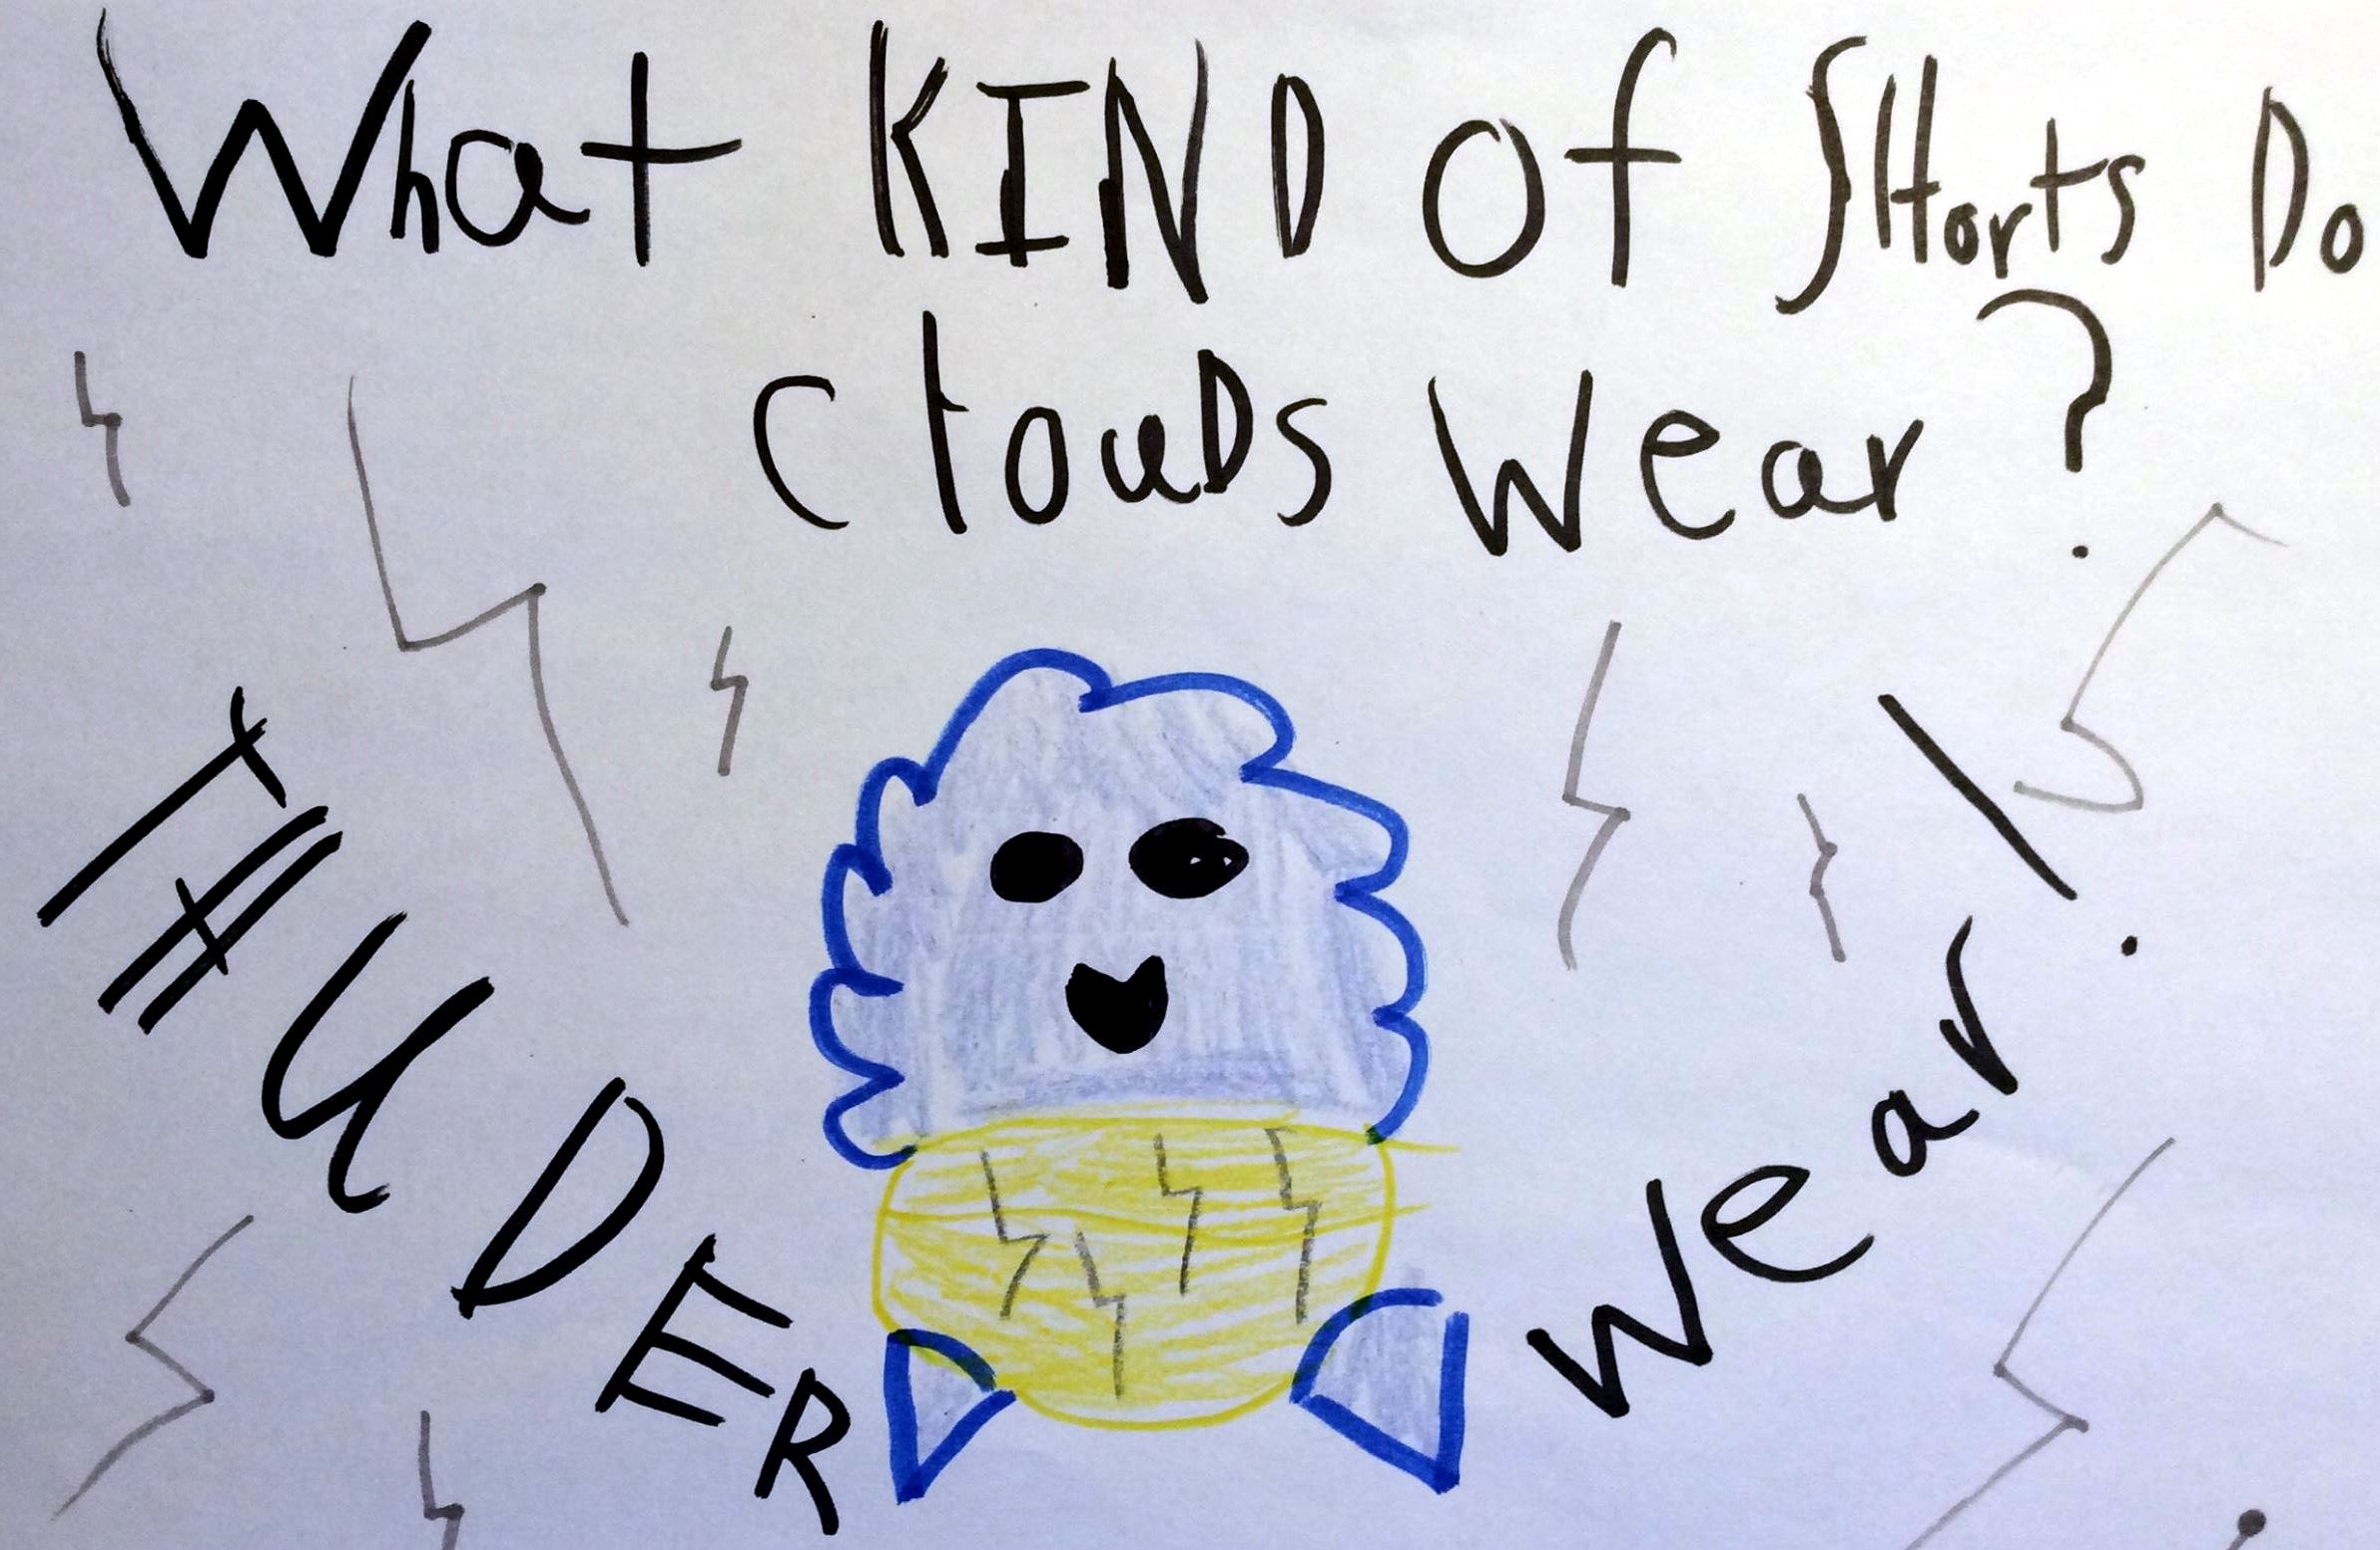 What KIND of SHorts Do
clouDs wear?
THUDER wear!